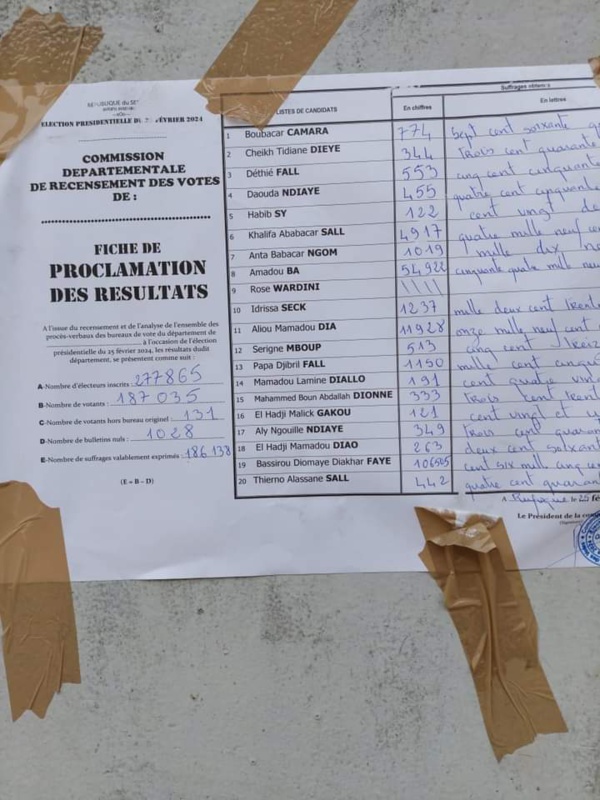 REPUBLIQUE du
ELECTION PRESIDENTIELLE DU FÉVRIER 2024
COMMISSION
DEPARTEMENTALE
DE RECENSEMENT DES VOTES
DE :
FICHE DE
PROCLAMATION
DES RESULTATS
A l'issue du recensement et de l'analyse de l'ensemble des
procès-verbaux des bureaux de vote du département de
à l'occasion de l'élection
présidentielle du 25 février 2024, les résultats dudit
département, se présentent comme suit :
A-Nombre d'électeurs inscrits 277865
B-Nombre de votants : 187 035
C-Nombre de votants hors bureau originel : 131
D-Nombre de bulletins nuls : 1028
E-Nombre de suffrages valablement exprimés : 186 138
(E = B – D)
Suffrages obtenus
LISTES DE CANDIDATS En chiffres En lettres
1 Boubacar CAMARA 774 sept cent soixante
2 Cheikh Tidiane DIEYE 344 trois cent quarante
3 Déthié FALL 553 cinq cent cinquante
4 Daouda NDIAYE 455 quatre cent cinquante
5 Habib SY 122 cent vingt
6 Khalifa Ababacar SALL 4917 quatre mille neuf
7 Anta Babacar NGOM 1019 mille dix
8 Amadou BA 54922 cinquante quatre mille
9 Rose WARDINI
10 Idrissa SECK 1237 mille deux cent
11 Aliou Mamadou DIA 11928 onze mille neuf cent
12 Serigne MBOUP 513 cinq cent
13 Papa Djibril FALL 1150 mille cent
14 Mamadou Lamine DIALLO 191 cent quatre
15 Mohammed Boun Abdallah DIONNE 333 trois cent
16 El Hadji Malick GAKOU 121 cent vingt et
17 Aly Ngouille NDIAYE 349 trois cent
18 El Hadji Mamadou DIAO 263 deux cent
19 Bassirou Diomaye Diakhar FAYE 106525 cent six mille cinq
20 Thierno Alassane SALL 442 quatre cent
A Rufisque le 25
Le Président de la